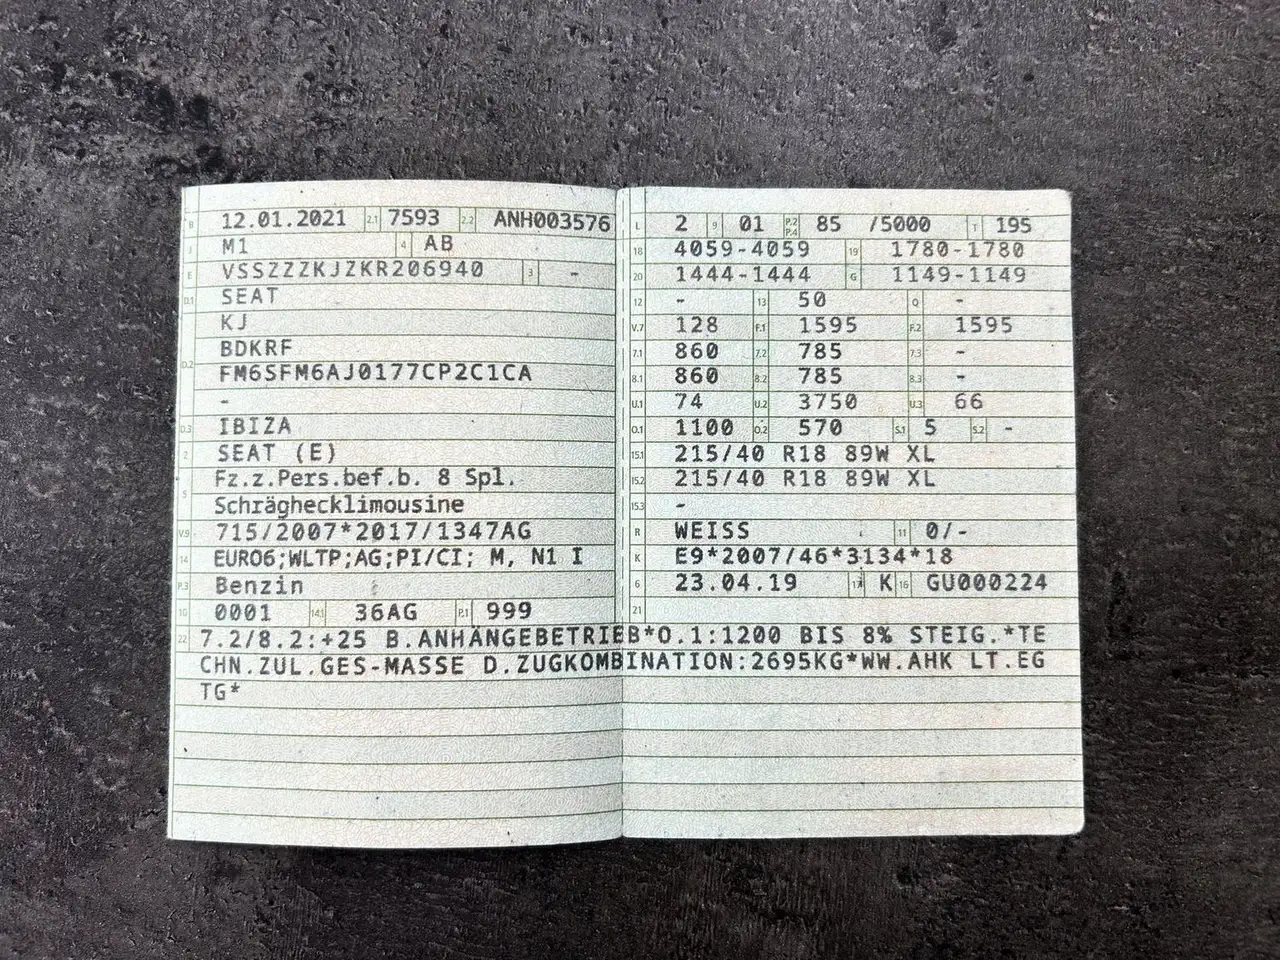 B 12.01.2021 2.1 7593 2.2 ANH003576
J M1 4 AB
E VSSZZZKJZKR206940 3 -
D.1 SEAT
KJ
D.2 BDKRF
FM6SFM6AJ0177CP2C1CA
-
D.3 IBIZA
2 SEAT (E)
5 Fz.z.Pers.bef.b. 8 Spl.
Schräghecklimousine
V.9 715/2007*2017/1347AG
14 EURO6;WLTP;AG;PI/CI; M, N1 I
P.3 Benzin
10 0001 14.1 36AG P.1 999
L 2 9 01 P.2 P.4 85 /5000 T 195
18 4059-4059 19 1780-1780
20 1444-1444 G 1149-1149
12 - 13 50 Q -
V.7 128 F.1 1595 F.2 1595
7.1 860 7.2 785 7.3 -
8.1 860 8.2 785 8.3 -
U.1 74 U.2 3750 U.3 66
O.1 1100 O.2 570 S.1 5 S.2 -
15.1 215/40 R18 89W XL
15.2 215/40 R18 89W XL
15.3 -
R WEISS 11 0/-
K E9*2007/46*3134*18
6 23.04.19 17 K 16 GU000224
21
22 7.2/8.2:+25 B.ANHÄNGEBETRIEB*O.1:1200 BIS 8% STEIG.*TE
CHN.ZUL.GES-MASSE D.ZUGKOMBINATION:2695KG*WW.AHK LT.EG
TG*